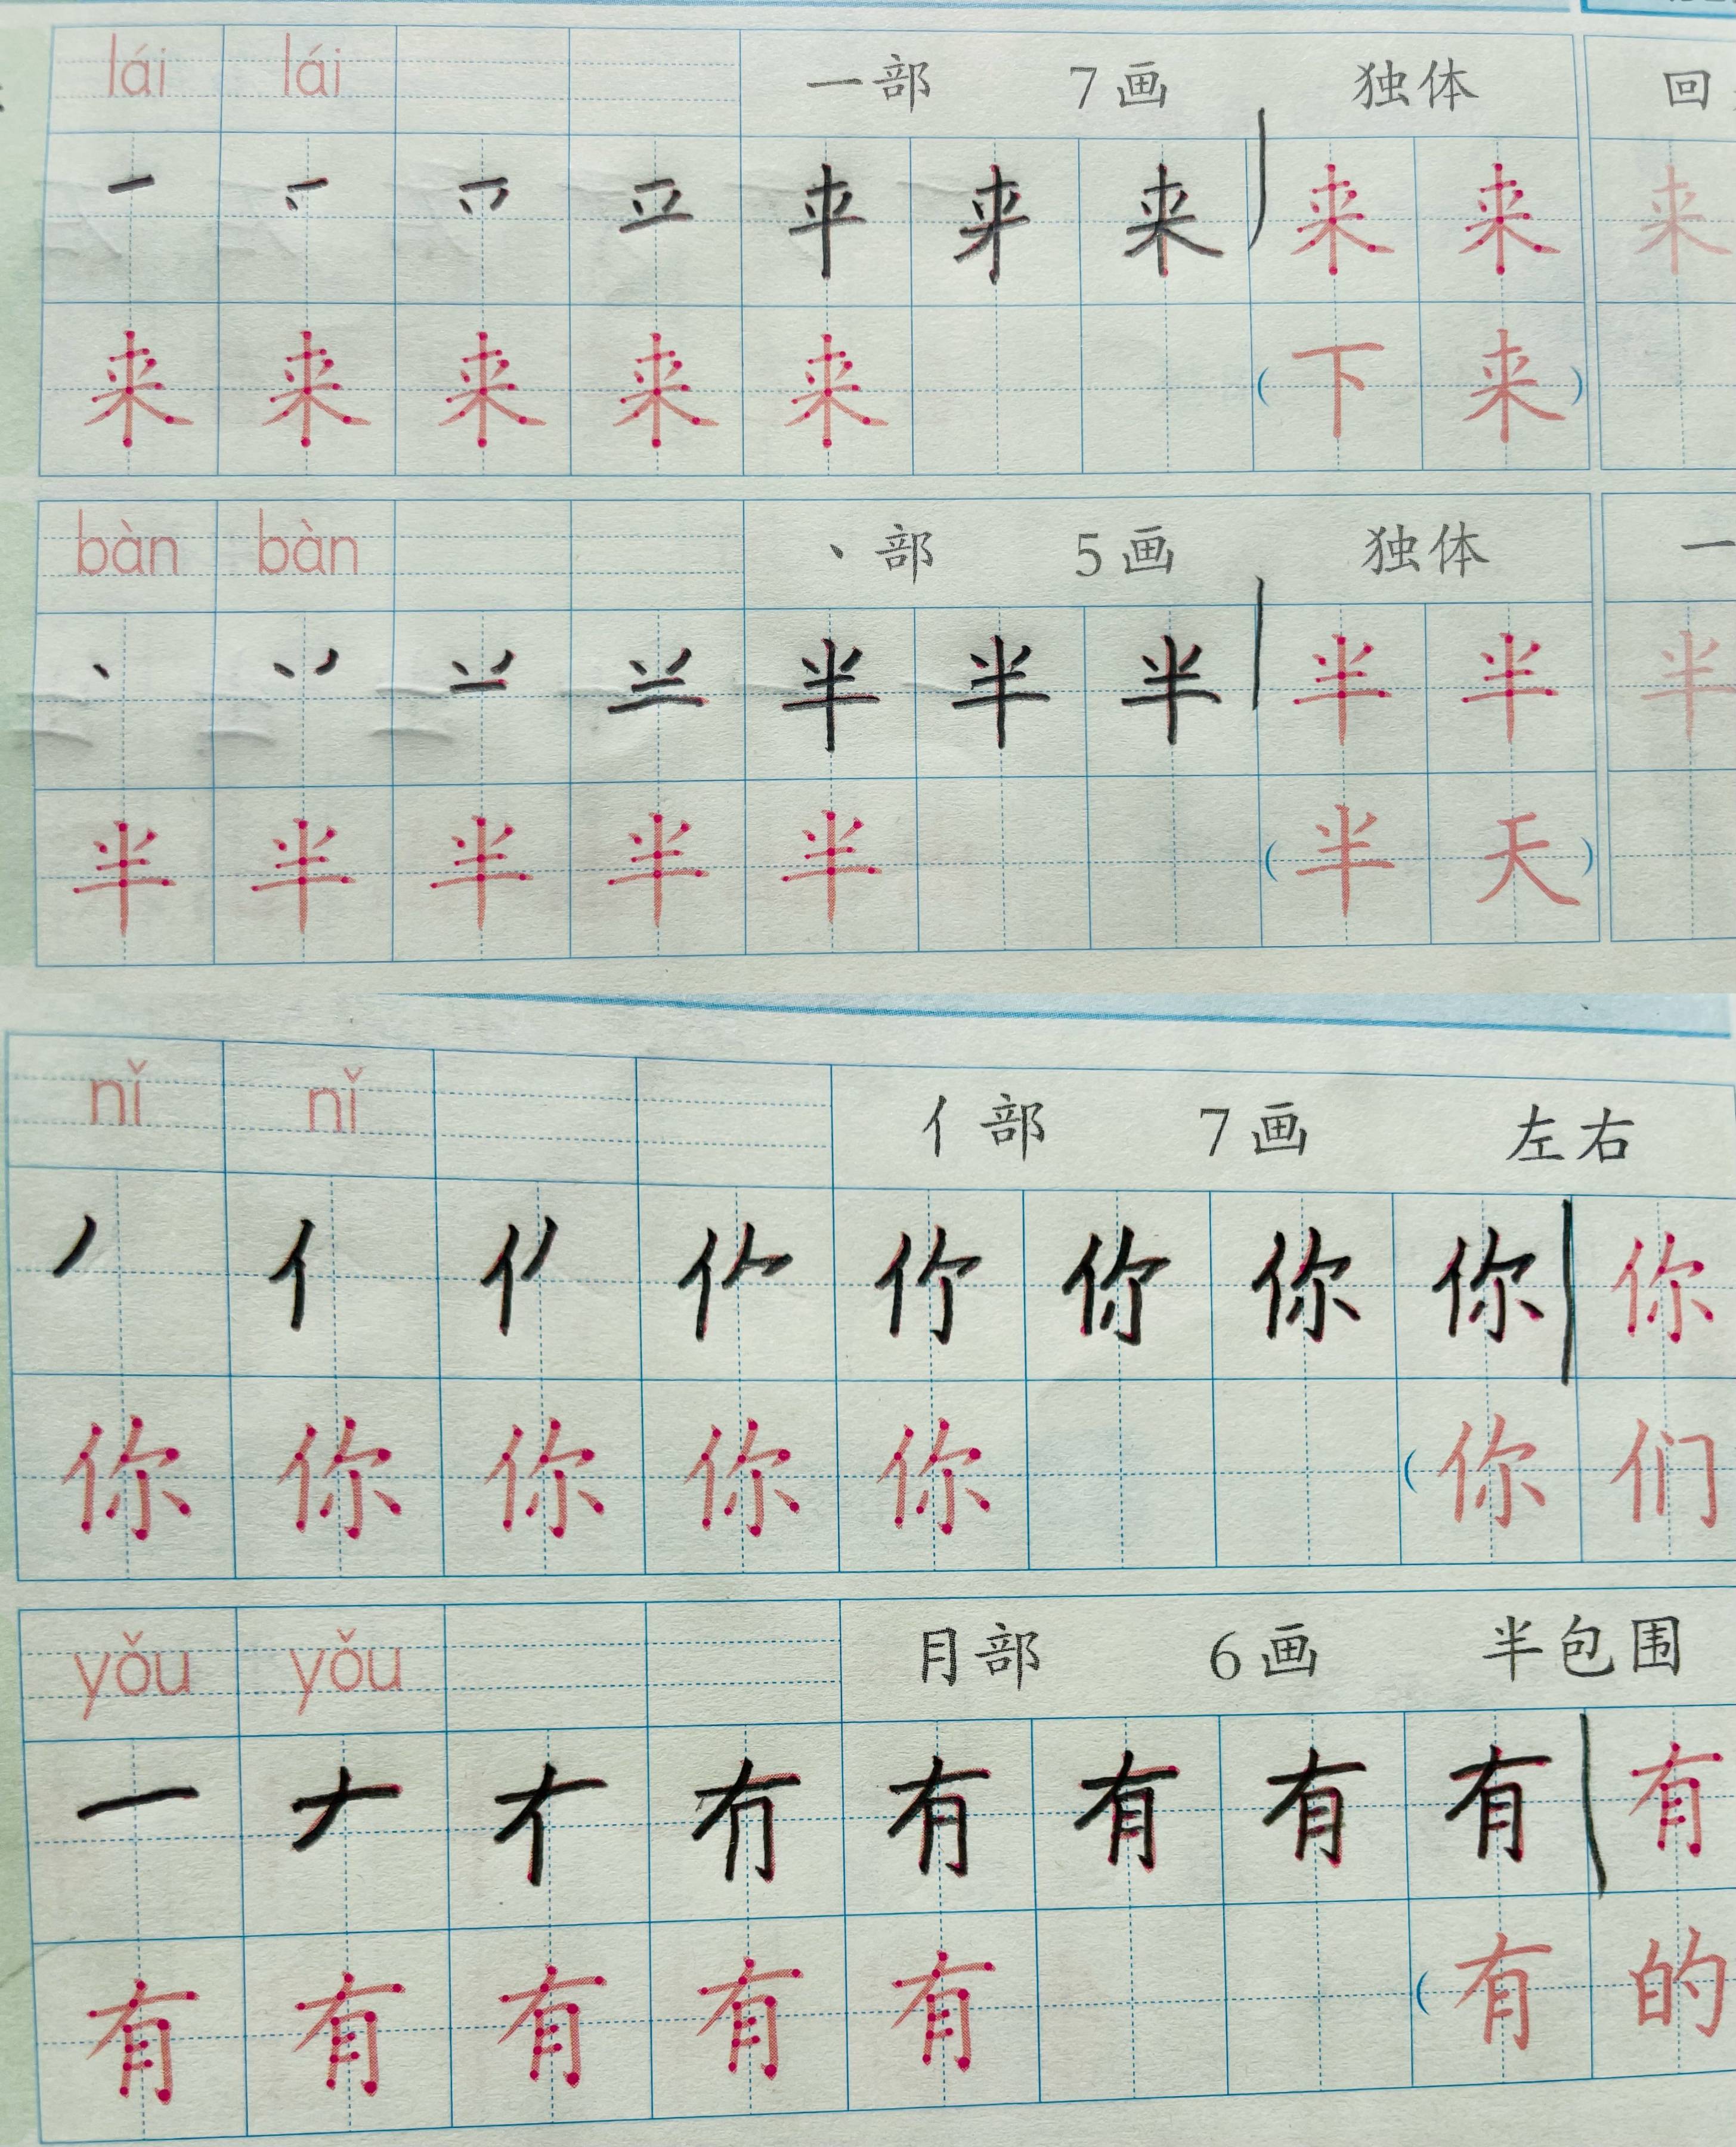 lái lái 一部 7画 独体 回
一 来 来 来
来 来 来 来 来 (下来)
bàn bàn 丶部 5画 独体 一
丶 半 半 半 半 半 半
半 半 半 半 半 (半天)
nǐ nǐ 亻部 7画 左右
丿 亻 你 你 你
你 你 你 你 你 (你们
yǒu yǒu 月部 6画 半包围
一 𠂇 有 有 有 有
有 有 有 有 有 (有的